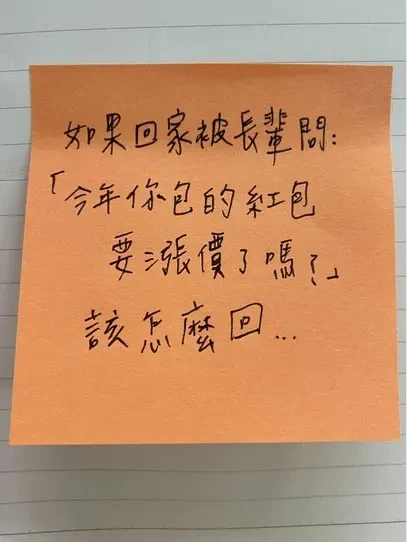 如果回家被長輩問:
「今年你包的紅包
要漲價了嗎?」
該怎麼回...